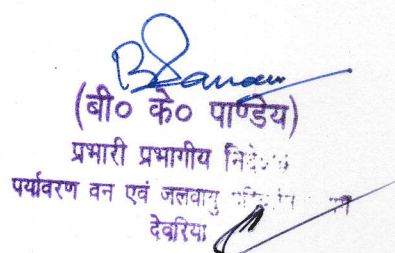 (बी० के० पाण्डेय)
प्रभारी प्रभागीय
पर्यावरण वन एवं जलवायु
देवरिया